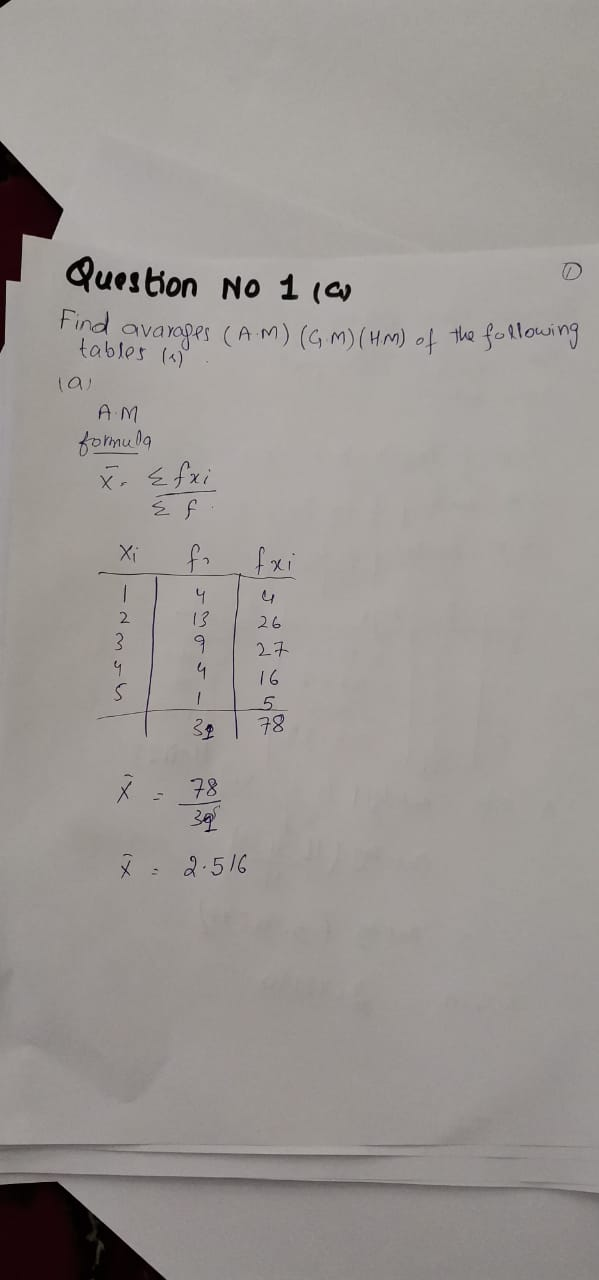 Question No 1 (a)
①
Find avarages (A.M) (G.M) (HM) of the following
tables (1)
(a)
A.M
formula
x̄ = Σ fxi
Σ f
Xi f fxi
1 4 4
2 13 26
3 9 27
4 4 16
5 1 5
31 78
x̄ = 78
31
x̄ = 2.516